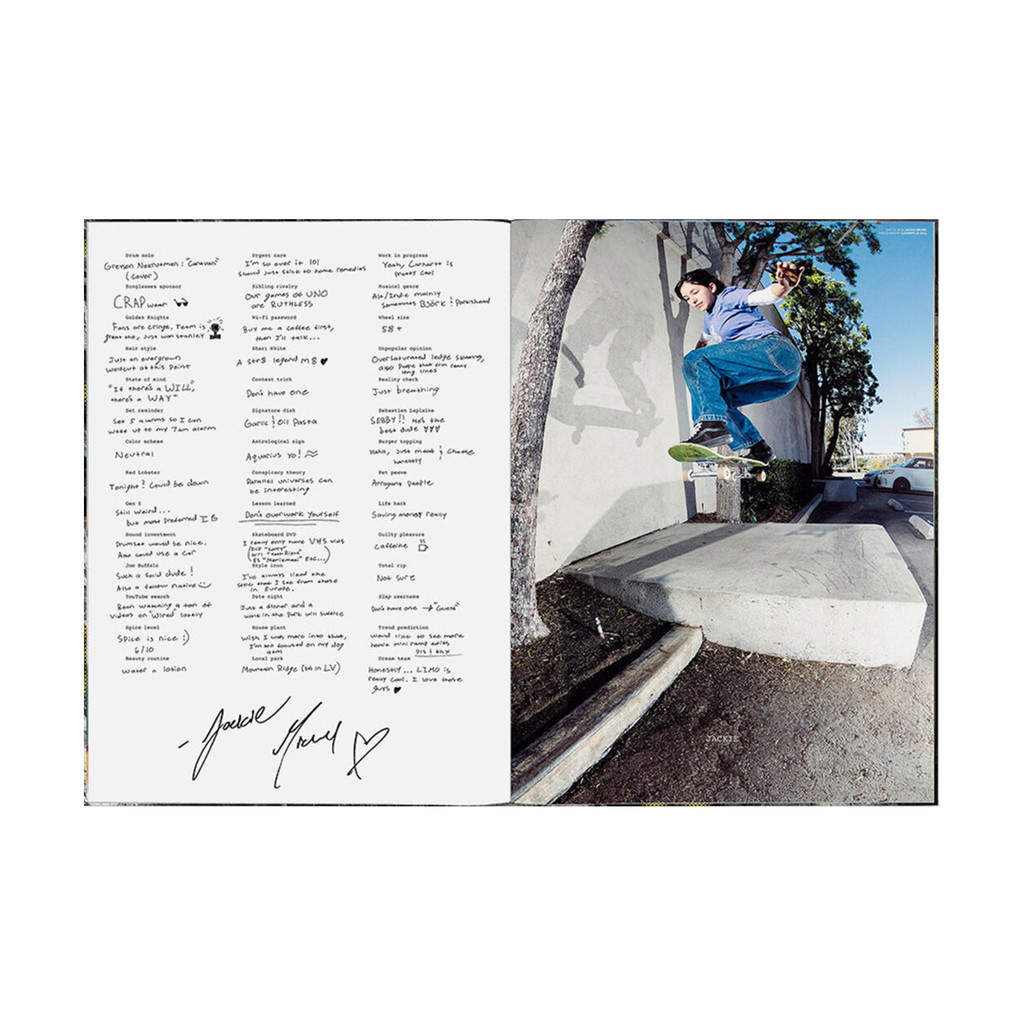 Drum solo
Greyson Nekrutman: "Caravan"
(cover)
Sunglasses sponsor
CRAP wear
Golden Knights
Fans are cringe, Team is
great tho, Just won Stanley
Hair style
Just an overgrown
wolfcut at this point
State of mind
"If there's a WILL,
there's a WAY"
Set reminder
Set 5 alarms so I can
wake up to my 7am alarm
Color scheme
Neutral
Red Lobster
Tonight? Could be down
Gen Z
Still weird...
but most preferred
Sound investment
Drumset would be nice.
And could use a car
Joe Buffalo
Such a solid dude!
Also a fellow native
YouTube search
Been watching a ton of
videos on "Wired" lately
Spice level
Spice is nice :)
6/10
Beauty routine
water & lotion
Urgent care
I'm so over it lol
Should just stick to home remedies
Sibling rivalry
Our games of UNO
are RUTHLESS
Wi-Fi password
Buy me a coffee first,
then I'll talk...
Shari White
A str8 legend m8
Contest trick
Don't have one
Signature dish
Garlic & Oil Pasta
Astrological sign
Aquarius Yo!
Conspiracy theory
Parallel universes can
be interesting
Lesson learned
Don't overwork yourself
Skateboard DVD
I really only have VHS was
Style icon
I've always liked the
style that I see from those
in Europe.
Date night
Just a dinner and a
walk in the park will suffice
House plant
Wish I was more into that,
I'm too focused on my dog
Local park
Mountain Ridge (in LV)
Work in progress
Yeah, Carhartt is
pretty cool
Musical genre
Alt/Indie mainly
Sometimes Björk & Portishead
Wheel size
58+
Unpopular opinion
Oversaturated ledge skating,
also people that film really
long lines
Reality check
Just breathing
Sebastien Laplaine
SEBBY!! He's the
best dude
Burger topping
Haha, Just meat & cheese
honestly
Pet peeve
Arrogant people
Life hack
Saving money really
Guilty pleasure
caffeine
Total rip
Not sure
Slap username
Don't have one
Trend prediction
would like to see more
Dream team
Honestly... LIMO is
really cool. I love those
guys
- Jackie
Michel
JACKIE